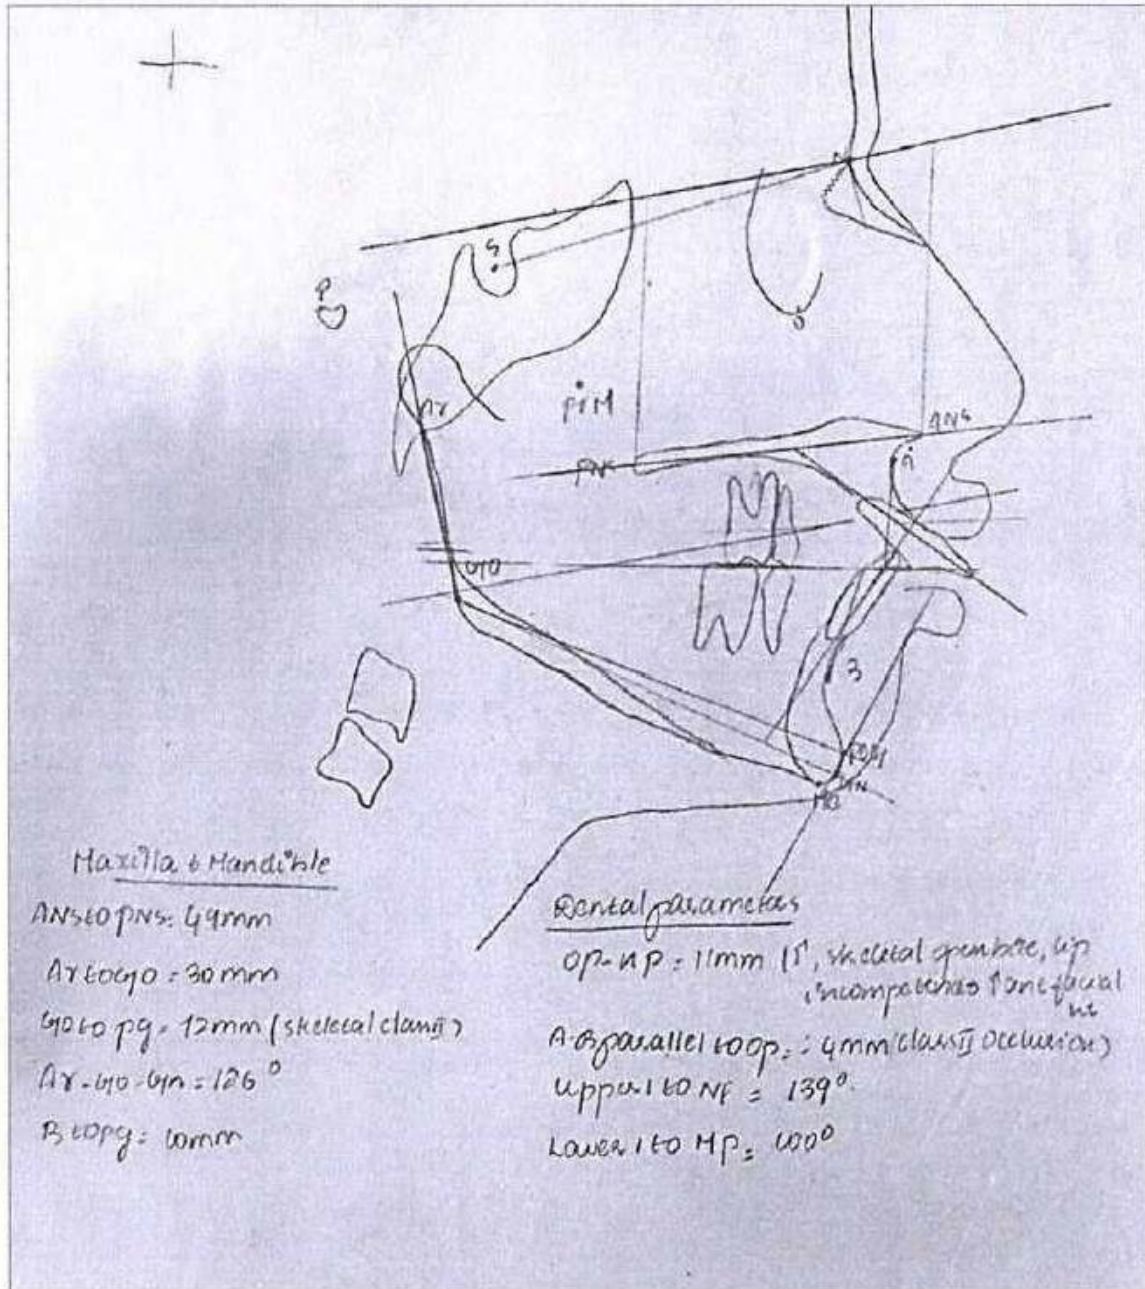 N
S
P
Ar
PTM
ANS
PNS
A
Go
B
Pog
GN
Me
Maxilla & Mandible
ANS to PNS: 49mm
Ar to Go = 30mm
Go to pg = 72mm (skeletal class II)
Ar-Go-Gn = 126°
B to pg = 10mm
Dental parameters
OP-HP = 11mm 1°, skeletal openbite, lip
incompetence ↑ ant facial
ht
A-B parallel to op = 4mm (class II Occlusion)
Upper 1 to NF = 139°
Lower 1 to MP = 100°